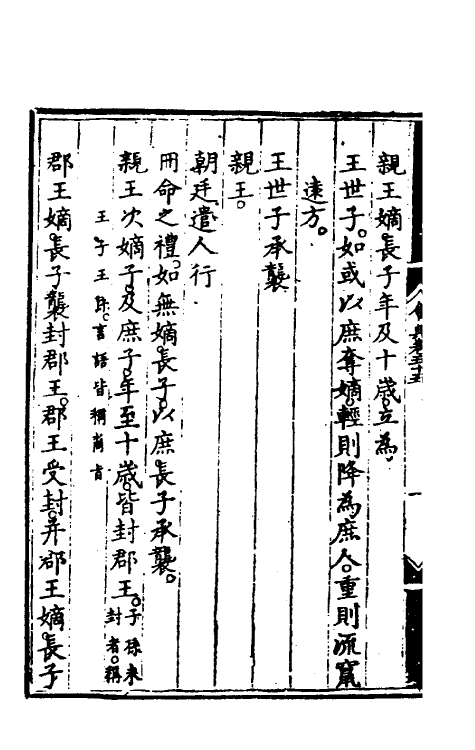 親王嫡長子年及十歲。立為
王世子。如或以庶奪嫡。輕則降為庶人。重則流竄
遠方。
王世子承襲
親王。
朝廷遣人行
冊命之禮。如無嫡長子。以庶長子承襲。
親王次嫡子。及庶子。年至十歲。皆封郡王。子孫未封者。稱
王子王孫。言語皆稱裔旨
郡王嫡長子襲封郡王。郡王受封。并郡王嫡長子